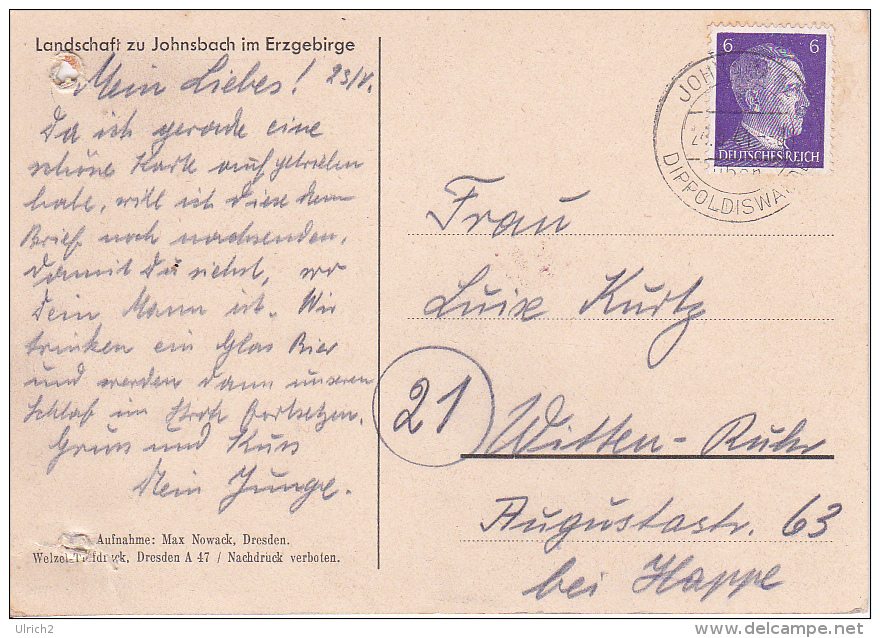 Landschaft zu Johnsbach im Erzgebirge
Mein Liebes! 23/V.
Da ich gerade eine
schöne Karte aufgetrieben
habe, will ich diese dem
Brief noch nachsenden,
damit Du siehst, wo
Dein Mann ist. Wir
trinken ein Glas Bier
und werden dann unseren
Schlaf im Stroh fortsetzen.
Gruss und Kuss
Dein Junge.
Aufnahme: Max Nowack, Dresden.
Dresden A 47 / Nachdruck verboten.
6 6
DEUTSCHES REICH
DIPPOLDISWA
Frau
Luise Kurtz
21
Witten-Ruhr
Augustastr. 63
bei Happe
Ulrich2
delcampe.net